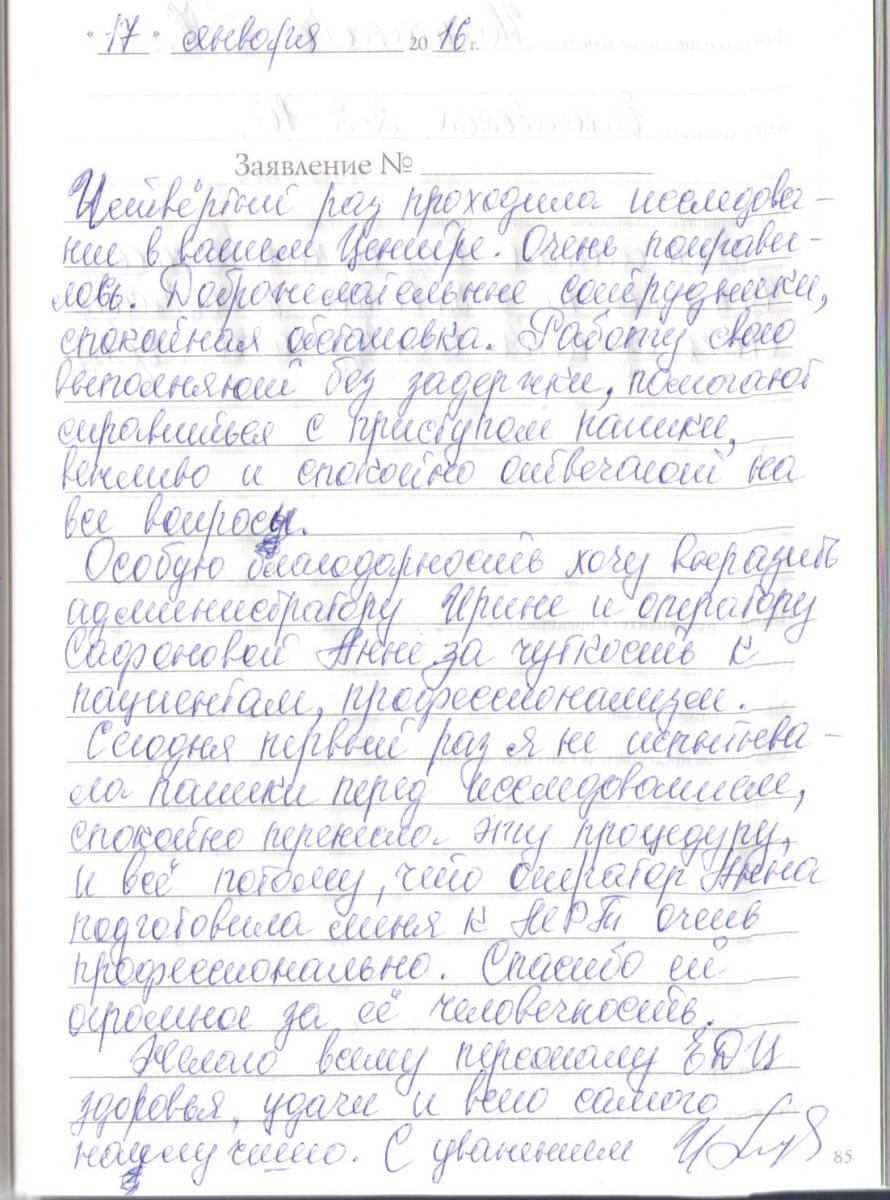 " 17 " января 2016 г.
Заявление №
Четвёртый раз проходила исследова-
ние в вашем Центре. Очень понрави-
лось. Доброжелательные сотрудники,
спокойная обстановка. Работу свою
выполняют без задержки, помогают
справиться с приступом паники,
вежливо и спокойно отвечают на
все вопросы.
Особую благодарность хочу выразить
администратору Ирине и оператору
Сафоновой Анне за чуткость к
пациентам, профессионализм.
Сегодня первый раз я не испытыва-
ла паники перед исследованием,
спокойно перенесла эту процедуру,
и всё потому, что оператор Анна
подготовила меня к МРТ очень
профессионально. Спасибо ей
огромное за её человечность.
Желаю всему персоналу ЕДЦ
здоровья, удачи и всего самого
наилучшего. С уважением
85